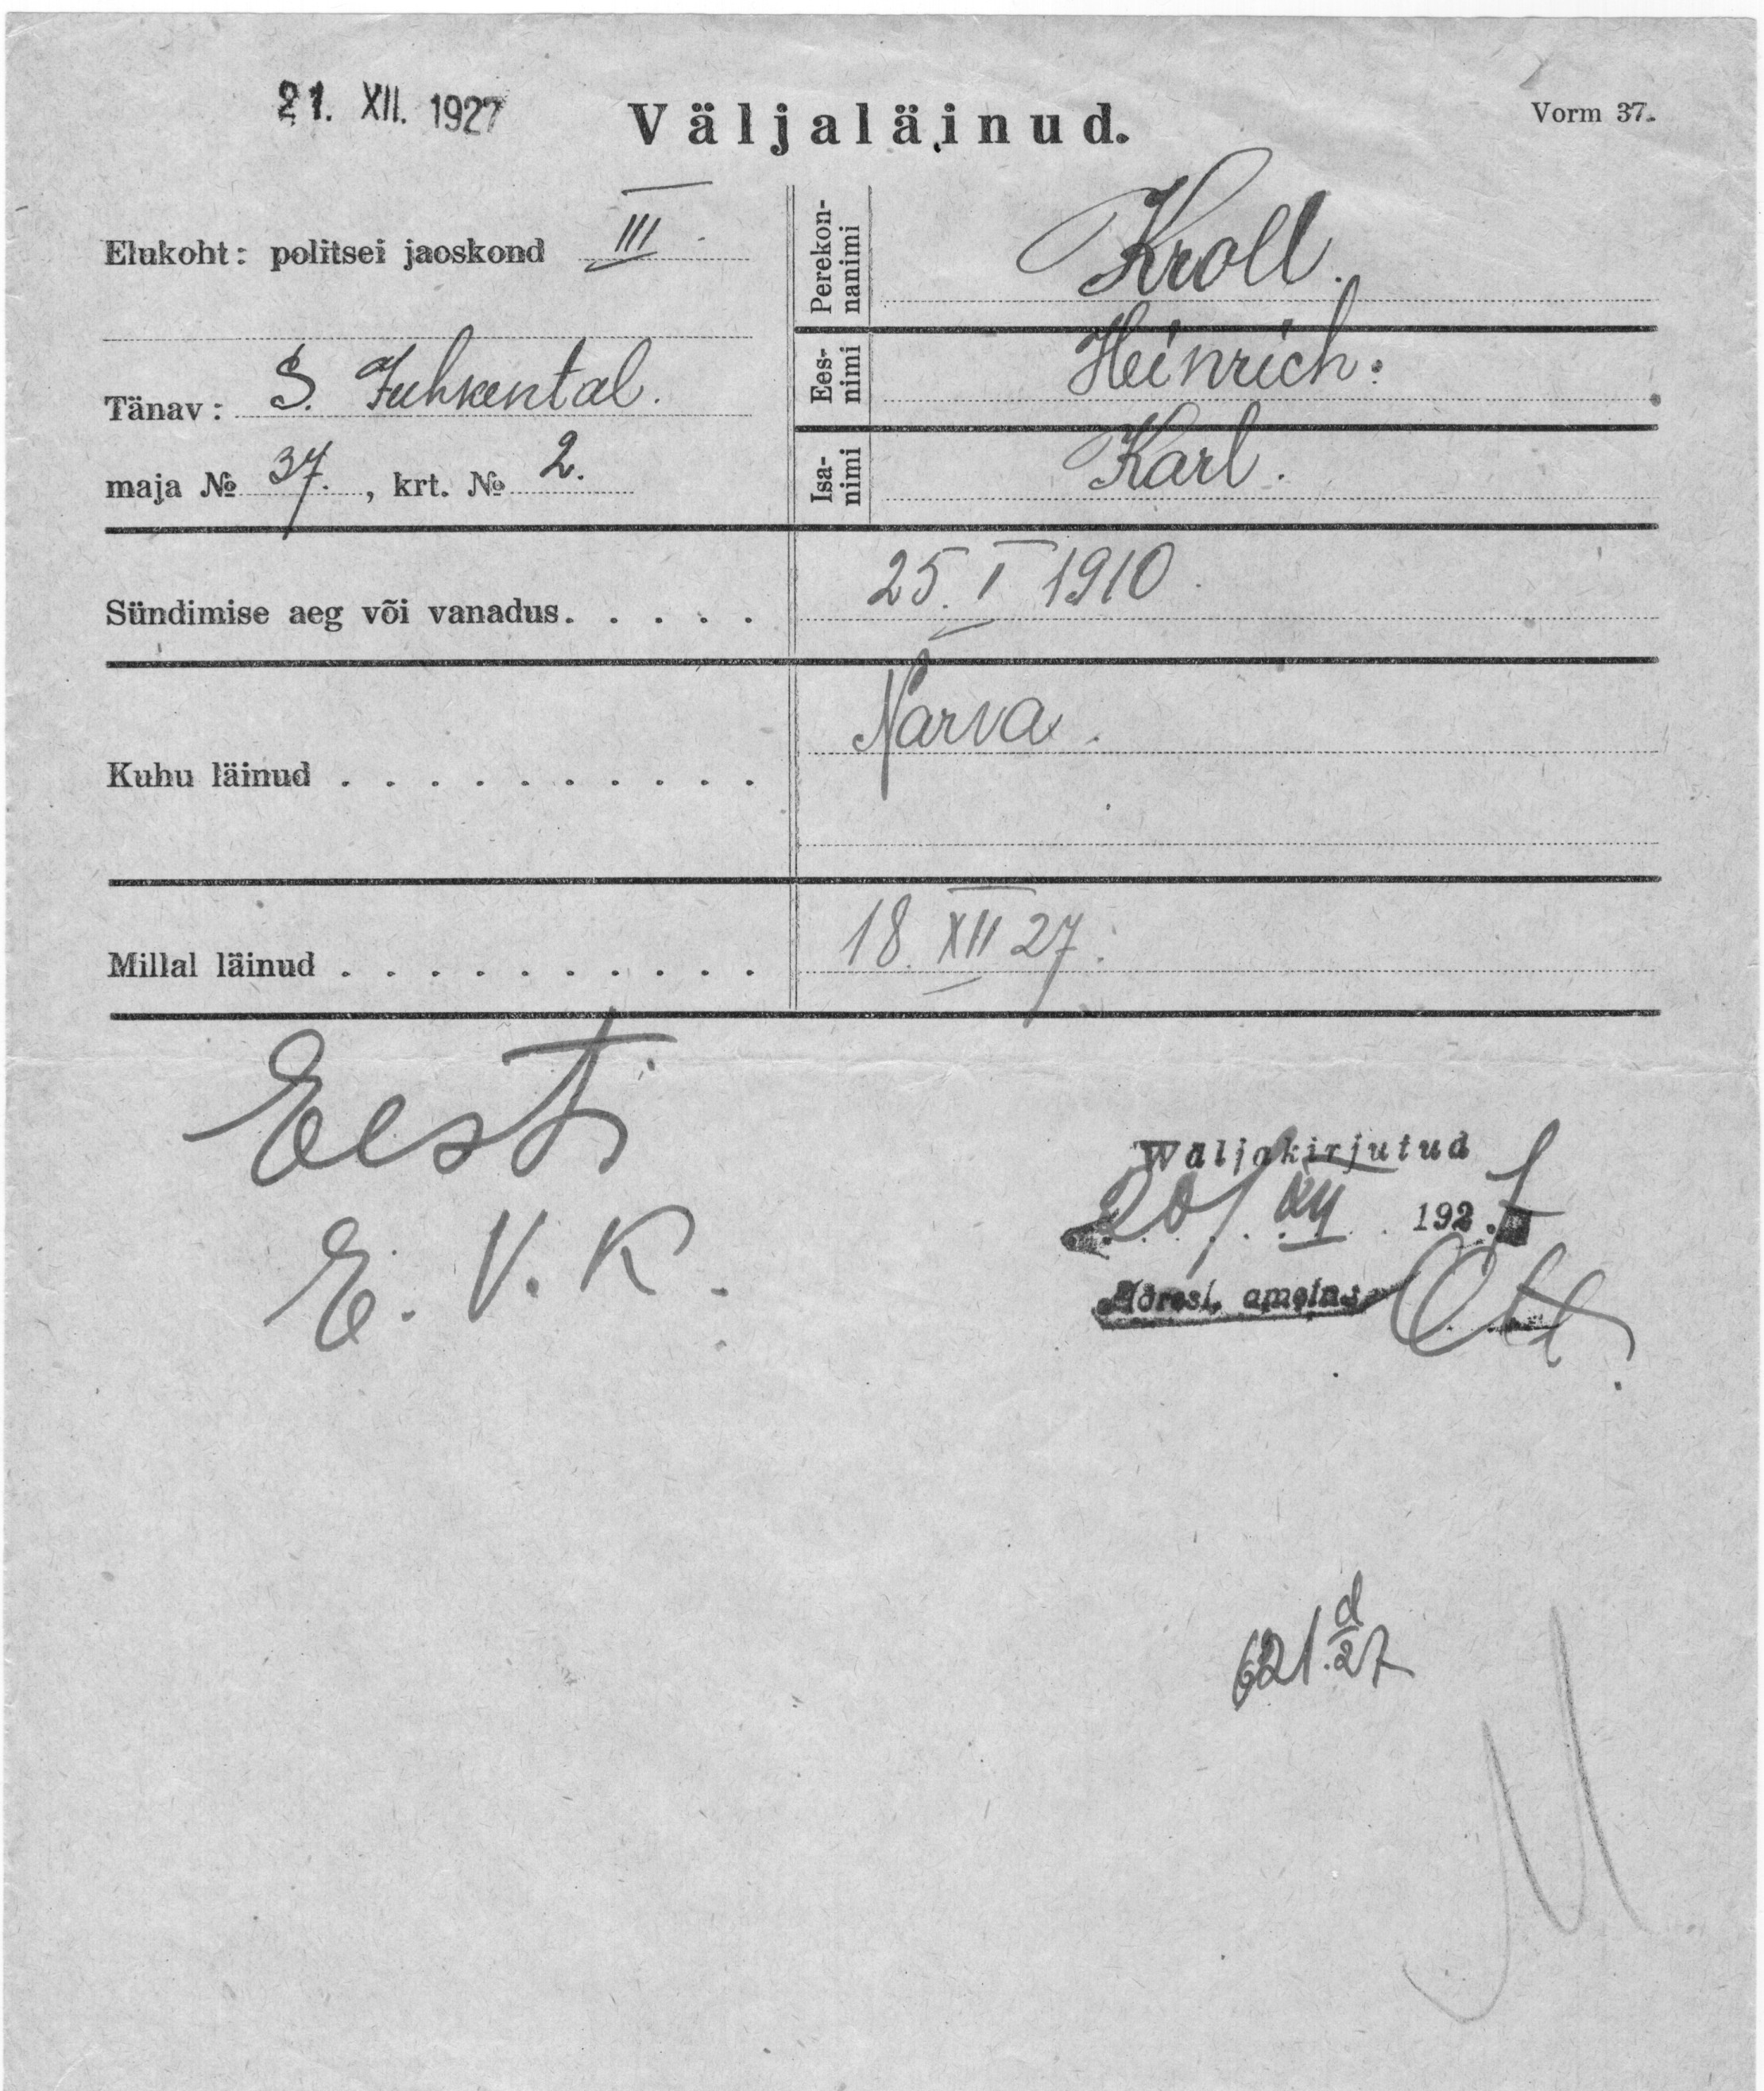 21. XII. 1927
Väljaläinud.
Vorm 37.
Elukoht: politsei jaoskond III
Tänav: S. Juhkental.
maja № 37. , krt. № 2.
Perekon-
nanimi
Kroll.
Ees-
nimi
Heinrich.
Isa-
nimi
Karl.
Sündimise aeg või vanadus. . . . . 25. I 1910.
Kuhu läinud . . . . . . . . . . Narva.
Millal läinud . . . . . . . . . . 18. XII 27.
Eesti
E. V. K.
Wäljakirjutud
20/ XII 1927
Ott
621. d/27